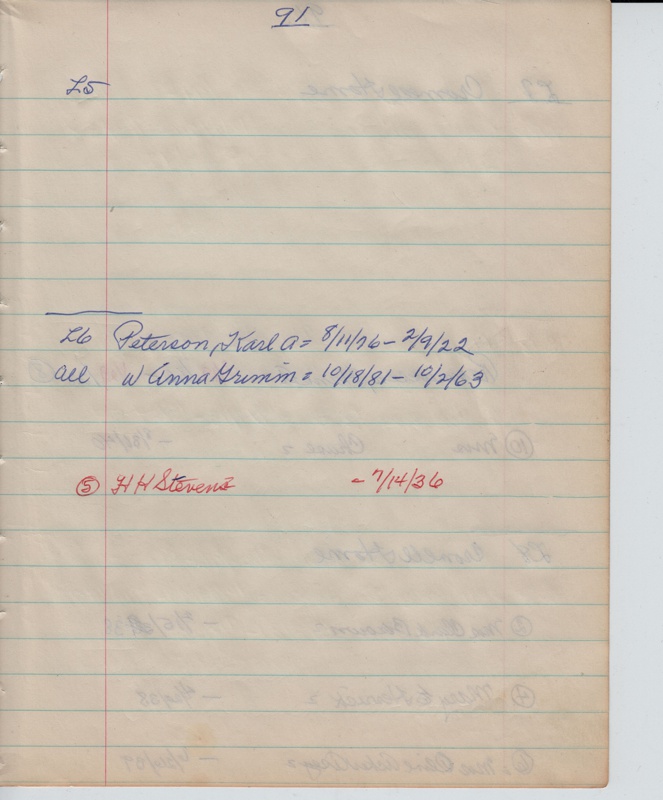 91
L5
L6 Peterson, Karl A = 8/11/76 - 2/9/22
all w Anna Grimm = 10/18/81 - 10/2/63
⑤ H H Stevens = - 7/14/36